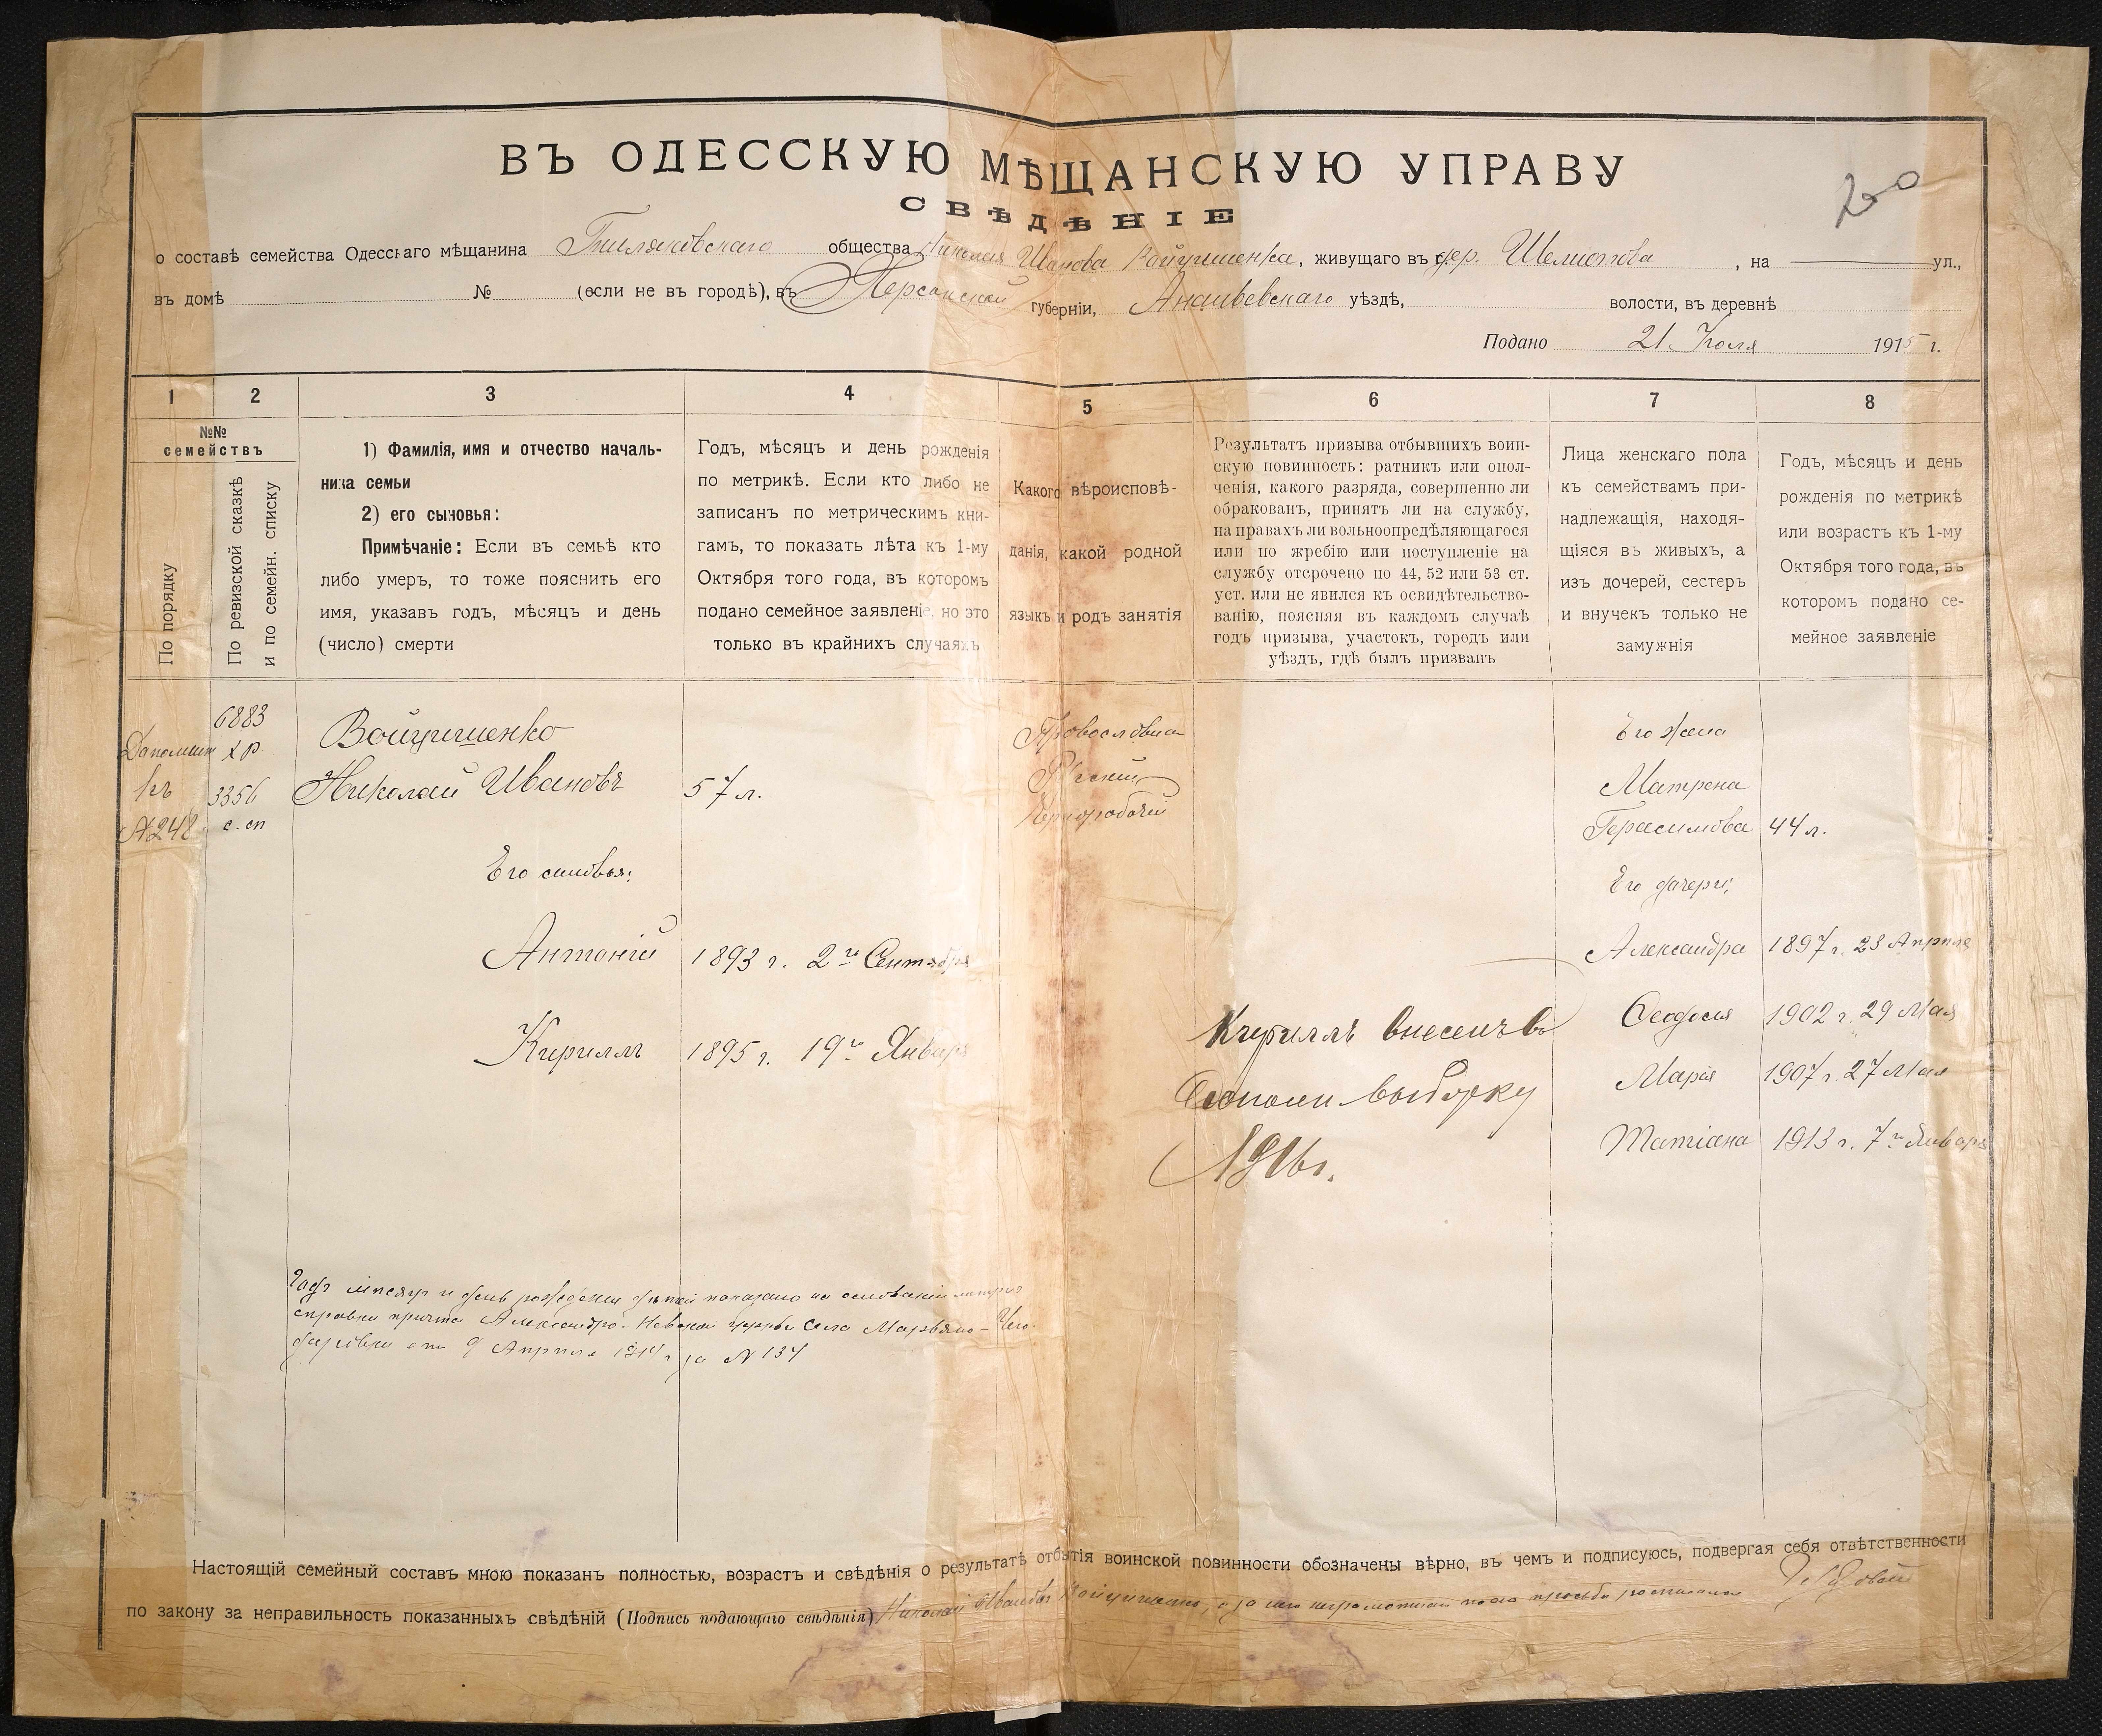 200
ВЪ ОДЕССКУЮ МѢЩАНСКУЮ УПРАВУ
СВѢДѢНІЕ
о составѣ семейства Одесскаго мѣщанина общества Николая Иванова, живущаго въ дер., на ул.,
въ домѣ № (если не въ городѣ), въ Херсонской губерніи, Ананьевскаго уѣздѣ, волости, въ деревнѣ
Подано 21 Іюля 1915 г.
1 2 3 4 5 6 7 8
№№
семействъ
По порядку
По ревизской сказкѣ
и по семейн. списку
1) Фамилія, имя и отчество началь-
ника семьи
2) его сыновья:
Примѣчаніе: Если въ семьѣ кто
либо умеръ, то тоже пояснить его
имя, указавъ годъ, мѣсяцъ и день
(число) смерти
Годъ, мѣсяцъ и день рожденія
по метрикѣ. Если кто либо не
записанъ по метрическимъ кни-
гамъ, то показать лѣта къ 1-му
Октября того года, въ которомъ
подано семейное заявленіе, но это
только въ крайнихъ случаяхъ
Какого вѣроисповѣ-
данія, какой родной
языкъ и родъ занятія
Результатъ призыва отбывшихъ воин-
скую повинность: ратникъ или опол-
ченія, какого разряда, совершенно ли
обракованъ, принятъ ли на службу,
на правахъ ли вольноопредѣляющагося
или по жребію или поступленіе на
службу отсрочено по 44, 52 или 53 ст.
уст. или не явился къ освидѣтельство-
ванію, поясняя въ каждомъ случаѣ
годъ призыва, участокъ, городъ или
уѣздъ, гдѣ былъ призванъ
Лица женскаго пола
къ семействамъ при-
надлежащія, находя-
щіяся въ живыхъ, а
изъ дочерей, сестеръ
и внучекъ только не
замужнія
Годъ, мѣсяцъ и день
рожденія по метрикѣ
или возрастъ къ 1-му
Октября того года, въ
которомъ подано се-
мейное заявленіе
къ
№ 248
6883
х р.
3356
с. сп
Войцишенко
Николай Ивановъ 57 л.
Его сыновья:
Антоній 1893 г. 2го Сентября
Кириллъ 1895 г. 19го Января
Русскій
Чернорабочій
Кириллъ внесенъ въ
выборку
1916 г.
Его жена
Матрена
Герасимова 44 л.
Его дочери:
Александра 1897 г. 23 Апрѣля
Ѳеодосія 1902 г. 29 Мая
Марія 1907 г. 27 Мая
Татіана 1913 г. 7го Января
Годъ мѣсяцъ и день рожденія дѣтей показано на основаніи
справки причта Александро-Невской церкви села
от 9 Апрѣля 1914 г. за № 134
Настоящій семейный составъ мною показанъ полностью, возрастъ и свѣдѣнія о результатѣ отбытія воинской повинности обозначены вѣрно, въ чемъ и подписуюсь, подвергая себя отвѣтственности
по закону за неправильность показанныхъ свѣдѣній (Подпись подающаго свѣдѣнія) Николай Ивановъ Войцишенко, а за него неграмотнаго по его просьбѣ росписался